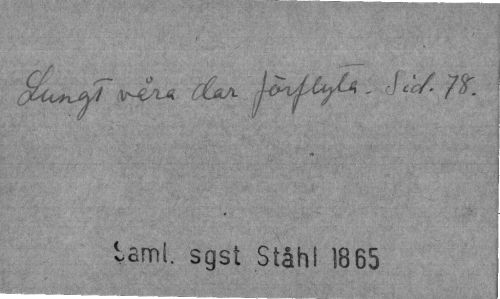 Lungt våra dar förflyta. Sid. 78.
Saml. sgst Ståhl 1865